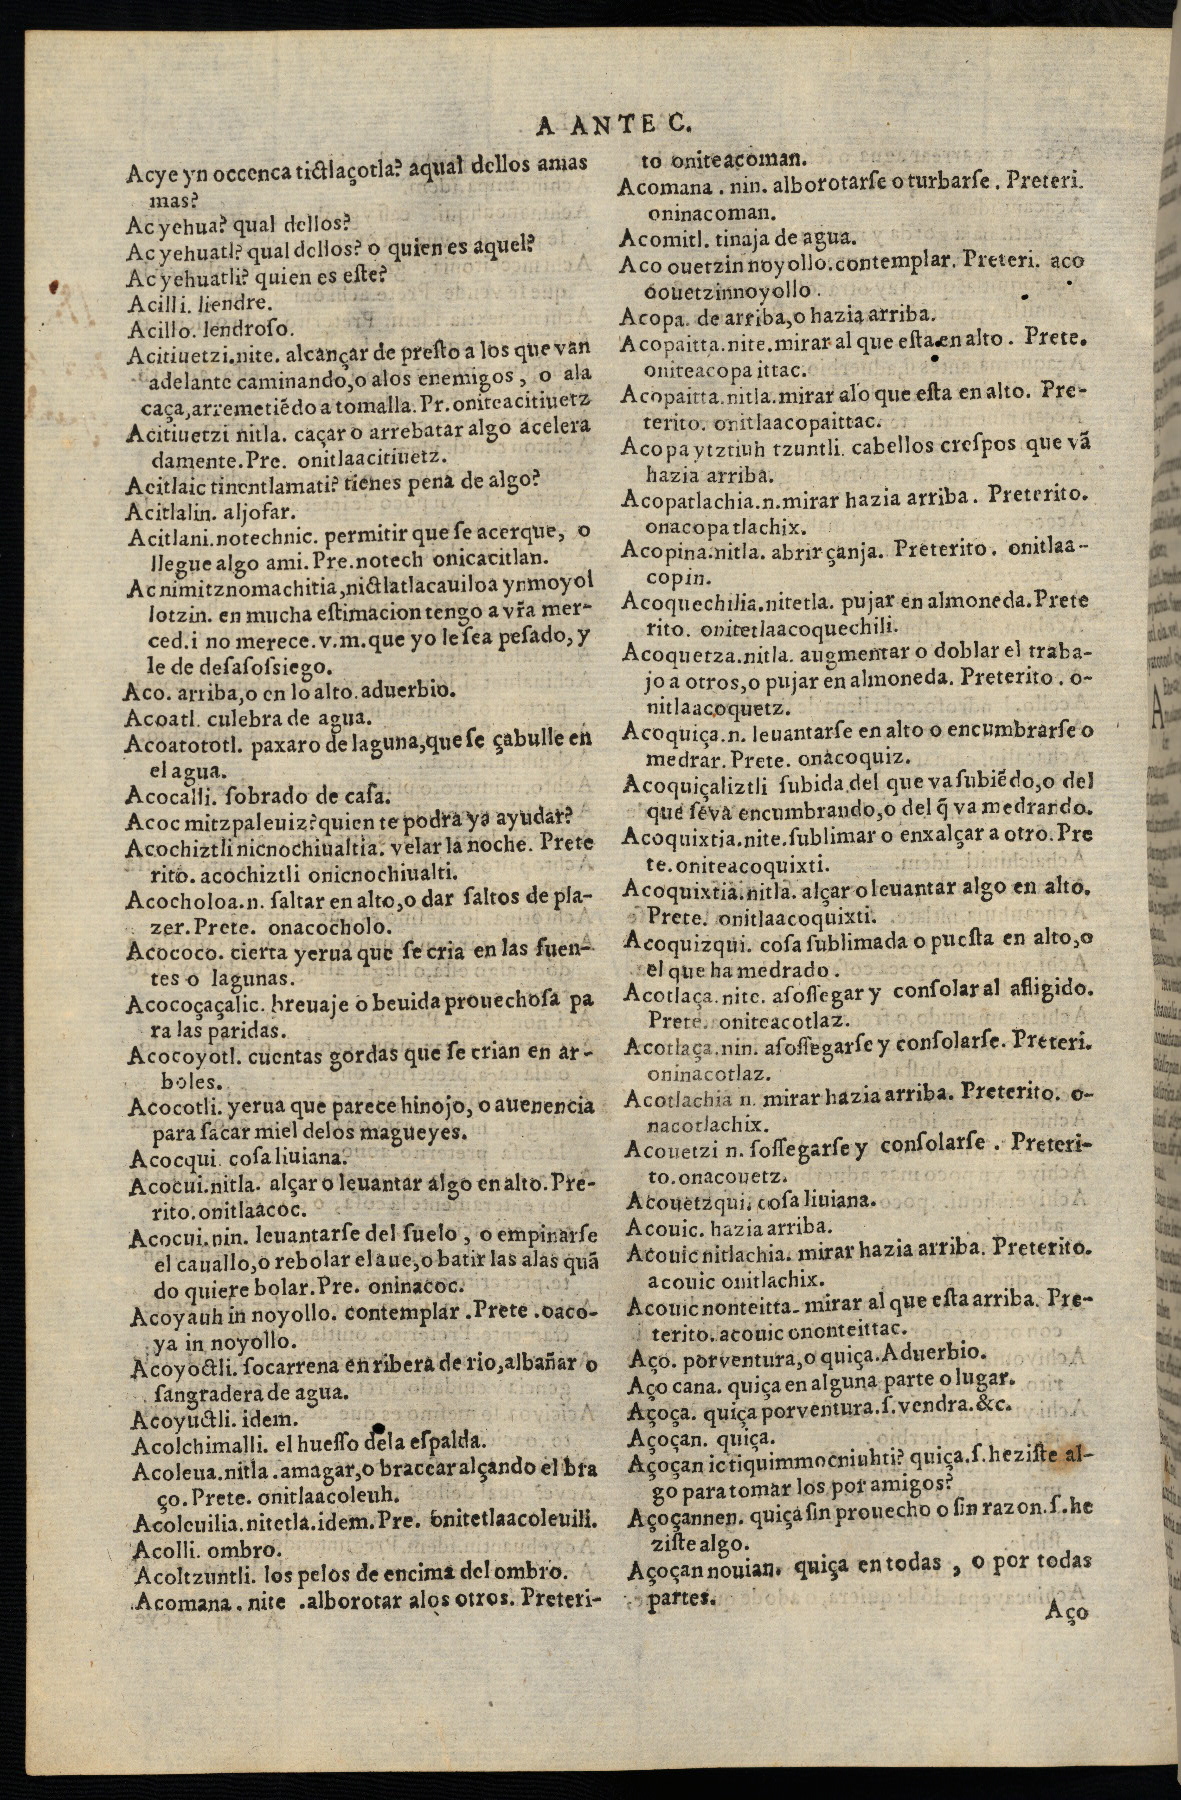 A ANTE C.
Acye yn occenca tictlaçotla? aqual dellos amas
mas?
Ac yehua? qual dellos?
Ac yehuatl? qual dellos? o quien es aquel?
Ac yehuatli? quien es eſte?
Acilli. liendre.
Acillo. lendroſo.
Acitiuetzi.nite. alcançar de preſto a los que van
adelante caminando,o alos enemigos, o ala
caça,arremetiẽdo a tomalla. Pr. oniteacitiuetz
Acitiuetzi nitla. caçar o arrebatar algo acelera
damente.Pre. onitlaacitiuetz.
Acitlaic tinentlamati? tienes pena de algo?
Acitlalin. aljofar.
Acitlani.notechnic. permitir que ſe acerque, o
llegue algo ami. Pre.notech onicacitlan.
Ac nimitznomachitia,nictlatlacauiloa yn moyol
lotzin. en mucha eſtimacion tengo a vr̃a mer-
ced.i no merece.v.m.que yo le ſea peſado, y
le de deſaſoſsiego.
Aco. arriba,o en lo alto.aduerbio.
Acoatl. culebra de agua.
Acoatototl. paxaro de laguna,que ſe çabulle en
el agua.
Acocalli. ſobrado de caſa.
Acoc mitzpaleuiz?quien te podra ya ayudar?
Acochiztli nicnochiualtia. velar la noche. Prete
rito. acochiztli onicnochiualti.
Acocholoa.n. ſaltar en alto,o dar ſaltos de pla-
zer.Prete. onacocholo.
Acococo. cierta yerua que ſe cria en las fuen-
tes o lagunas.
Acocoçaçalic. breuaje o beuida prouechoſa pa
ra las paridas.
Acocoyotl. cuentas gordas que ſe crian en ar-
boles.
Acocotli. yerua que parece hinojo, o auenencia
para ſacar miel delos magueyes.
Acocqui coſa liuiana.
Acocui.nitla. alçar o leuantar algo en alto. Pre-
rito.onitlaacoc.
Acocui.nin. leuantarſe del ſuelo, o empinarſe
el cauallo,o rebolar el aue,o batir las alas quã
do quiere bolar. Pre. oninacoc.
Acoyauh in noyollo. contemplar .Prete .oaco-
ya in noyollo.
Acoyoctli. ſocarrena en ribera de rio,albañar o
ſangradera de agua.
Acoyuctli. idem.
Acolchimalli. el hueſſo dela eſpalda.
Acoleua.nitla .amagar,o bracear alçando el bra
ço.Prete. onitlaacoleuh.
Acoleuilia.nitetla.idem.Pre. onitetlaacoleuili.
Acolli. ombro.
Acoltzuntli. los pelos de encima del ombro.
Acomana. nite .alborotar alos otros. Preteri-
to oniteacoman.
Acomana . nin. alborotarſe o turbarſe . Preteri.
oninacoman.
Acomitl. tinaja de agua.
Aco ouetzin noyollo.contemplar. Preteri. aco
oouetzinnoyollo.
Acopa. de arriba,o hazia arriba.
Acopaitta.nite.mirar al que eſta en alto. Prete.
oniteacopa ittac.
Acopaitta.nitla.mirar alo que eſta en alto. Pre-
terito. onitlaacopaittac.
Acopa ytztiuh tzuntli. cabellos creſpos que vã
hazia arriba.
Acopatlachia.n.mirar hazia arriba. Preterito.
onacopa tlachix.
Acopina.nitla. abrir çanja. Preterito. onitlaa-
copin.
Acoquechilia.nitetla. pujar en almoneda.Prete
rito. onitetlaacoquechili.
Acoquetza.nitla. augmentar o doblar el traba-
jo a otros,o pujar en almoneda. Preterito. o-
nitlaacoquetz.
Acoquiça.n. leuantarſe en alto o encumbrarſe o
medrar. Prete. onacoquiz.
Acoquiçaliztli ſubida del que va ſubiẽdo,o del
que ſe va encumbrando,o del q̃ va medrando.
Acoquixtia.nite.ſublimar o enxalçar a otro. Pre
te.oniteacoquixti.
Acoquixtia.nitla. alçar o leuantar algo en alto.
Prete. onitlaacoquixti.
Acoquizqui. coſa ſublimada o pueſta en alto,o
el que ha medrado.
Acotlaça.nite. aſoſſegar y conſolar al afligido.
Prete. oniteacotlaz.
Acotlaça.nin. aſoſſegarſe y conſolarſe. Preteri.
oninacotlaz.
Acotlachia n. mirar hazia arriba. Preterito. o-
nacotlachix.
Acouetzi n. ſoſſegarſe y conſolarſe . Preteri-
to.onacouetz.
Acouetzqui. coſa liuiana.
Acouic. hazia arriba.
Acouic nitlachia. mirar hazia arriba. Preterito.
acouic onitlachix.
Acouic nonteitta. mirar al que eſta arriba. Pre-
terito. acouic ononteittac.
Aço. porventura,o quiça.Aduerbio.
Aço cana. quiça en alguna parte o lugar.
Açoça. quiça porventura.ſ.vendra.&c.
Açoçan. quiça.
Açoçan ictiquimmocniuhti? quiça.ſ.heziſte al-
go para tomar los por amigos?
Açoçannen. quiça ſin prouecho o ſin razon.ſ.he
ziſte algo.
Açoçan nouian. quiça en todas , o por todas
partes.
Aço